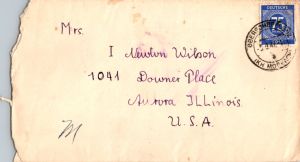 Mrs.
I Newton Wilson
1041 Downer Place
Aurora ILLinois
U.S.A.
DEUTSCHE
75
M